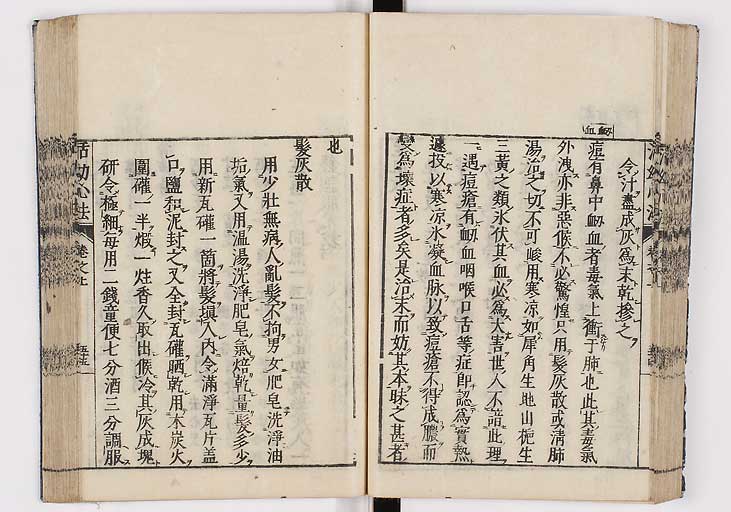 令汁盡成灰爲末乾摻之
衂血
痘有鼻中衂血者毒氣上衝于肺也此其毒氣
外洩亦非惡候不必驚惶只用髮灰散或淸肺
湯治之切不可峻用寒凉如犀角生地山梔生
三黃之類氷伏其血必爲大害世人不諳此理
一遇痘瘡有衂血咽喉口舌等症即認爲實熱
遽投以寒凉氷凝血脉以致痘瘡不得成膿而
變爲壞症者多矣是治末而妨其本昧之甚者
也
髮灰散
用少壯無病人亂髮不拘男女肥皂洗淨油
垢氣又用溫湯洗淨肥皂氣焙乾量髮多少
用新瓦礶一箇將髮塡入內令滿淨瓦片盖
口鹽和泥封之又全封瓦礶晒乾用木炭火
圍礶一半煅一炷香久取出候冷其灰成塊
研令極細每用二錢童便七分酒三分調服
活幼心法
卷之上